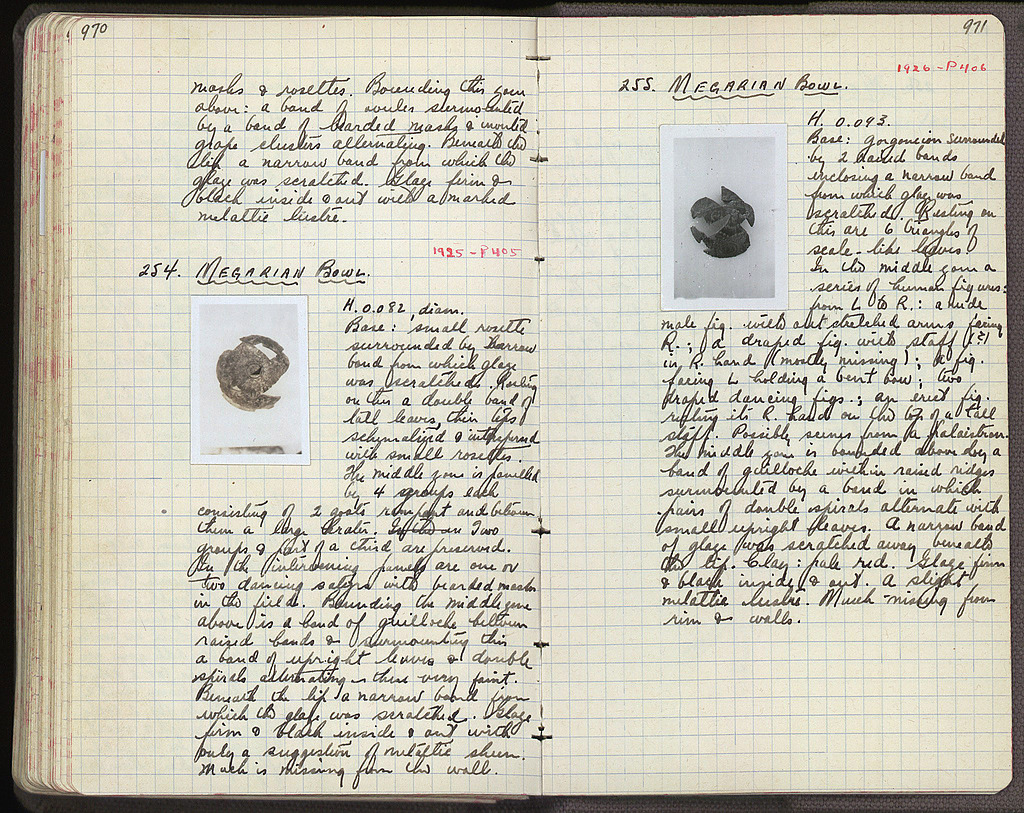 970
masks & rosettes. Bounding this zone
above: a band of ovules surmounted
by a band of bearded masks & inverted
grape clusters alternating. Beneath the
lip a narrow band from which the
glaze was scratched. Glaze firm &
black inside & out with a marked
metallic lustre.
1925 - P405
254. MEGARIAN BOWL.
H. 0.082, diam.
Base: small rosette
surrounded by narrow
band from which glaze
was scratched. Resting
on this a double band of
tall leaves, their tips
schematized & interspersed
with small rosettes.
The middle zone is panelled
by 4 groups each
consisting of 2 goats rampant and between
them a large krater. Two
groups & part of a third are preserved.
In the intervening panels are one or
two dancing satyrs with bearded masks
in the field. Bounding the middle zone
above is a band of guilloche between
raised bands & surmounting this
a band of upright leaves & double
spirals alternating - these very faint.
Beneath the lip a narrow band from
which the glaze was scratched. Glaze
firm & black inside & out with
only a suggestion of metallic sheen.
Much is missing from the wall.
971
1926 - P406
255. MEGARIAN BOWL.
H. 0.093.
Base: gorgoneion surrounded
by 2 raised bands
enclosing a narrow band
from which glaze was
scratched. Resting on
this are 6 triangles of
scale-like leaves.
In the middle zone a
series of human figures:
from L to R.: a nude
male fig. with outstretched arms facing
R.; a draped fig. with staff (?)
in R. hand (mostly missing); a fig.
facing L holding a bent bow; two
draped dancing figs.; an erect fig.
resting its R. hand on the top of a tall
staff. Possibly scenes from a palaistra.
The middle zone is bounded above by a
band of guilloche within raised ridges
surmounted by a band in which
pairs of double spirals alternate with
small upright leaves. A narrow band
of glaze was scratched away beneath
the lip. Clay: pale red. Glaze firm
& black inside & out. A slight
metallic lustre. Much missing from
rim & walls.